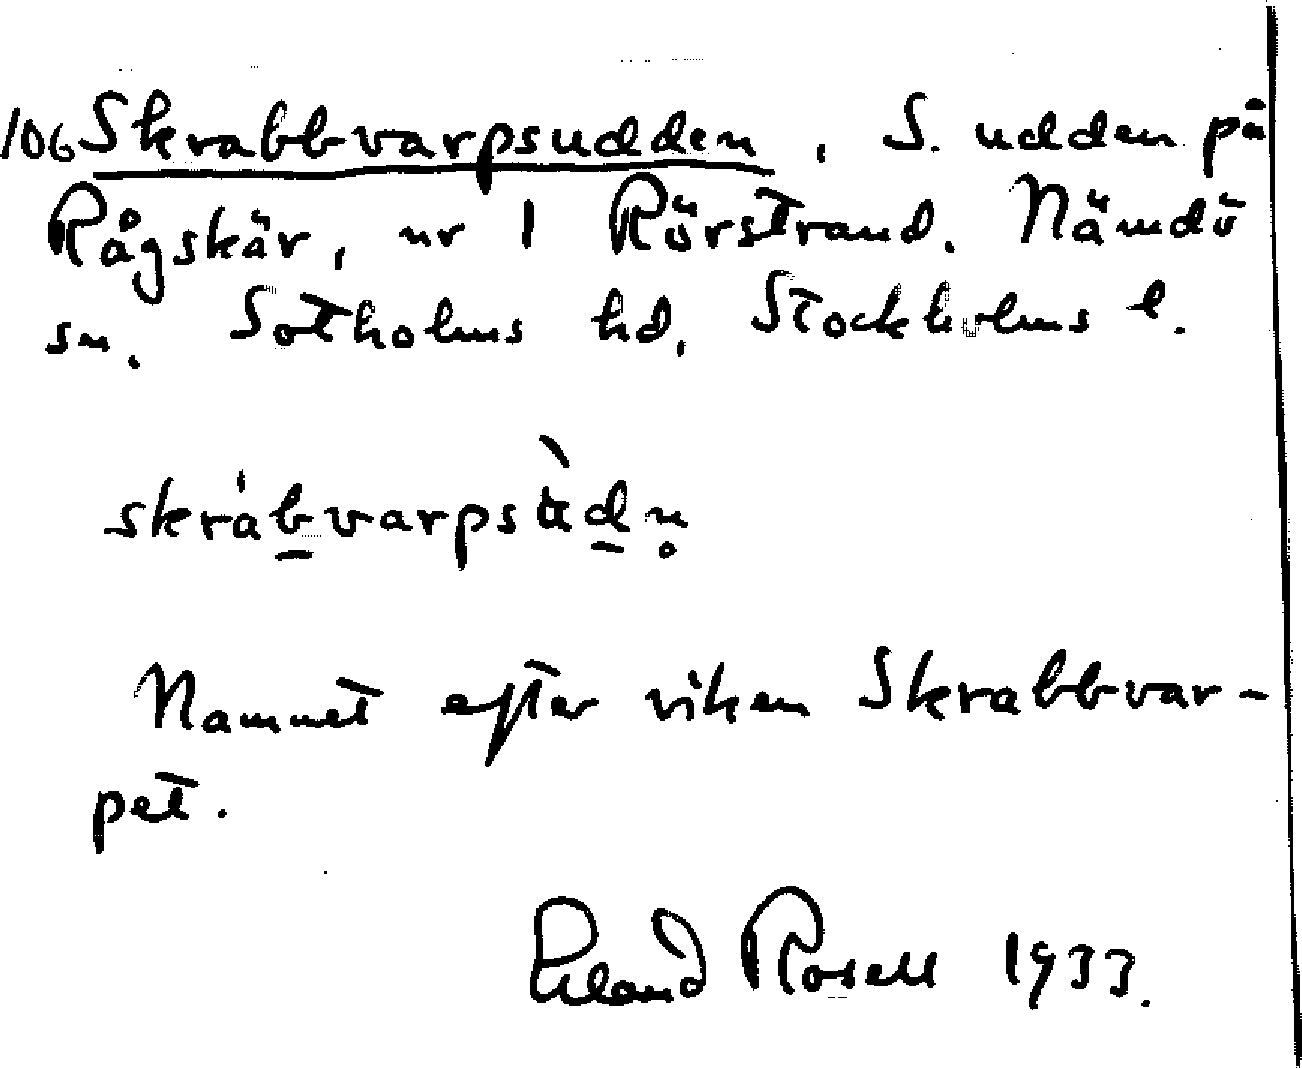 106 Skrabbvarpsudden, S. udden på
Rågskär, nr 1 Rörstrand. Nämdö
sn. Sotholms hd, Stockholms l.
skràb̲varpsùd̲n̥
Namnet efter viken Skrabbvar-
pet.
Erland Rosell 1933.